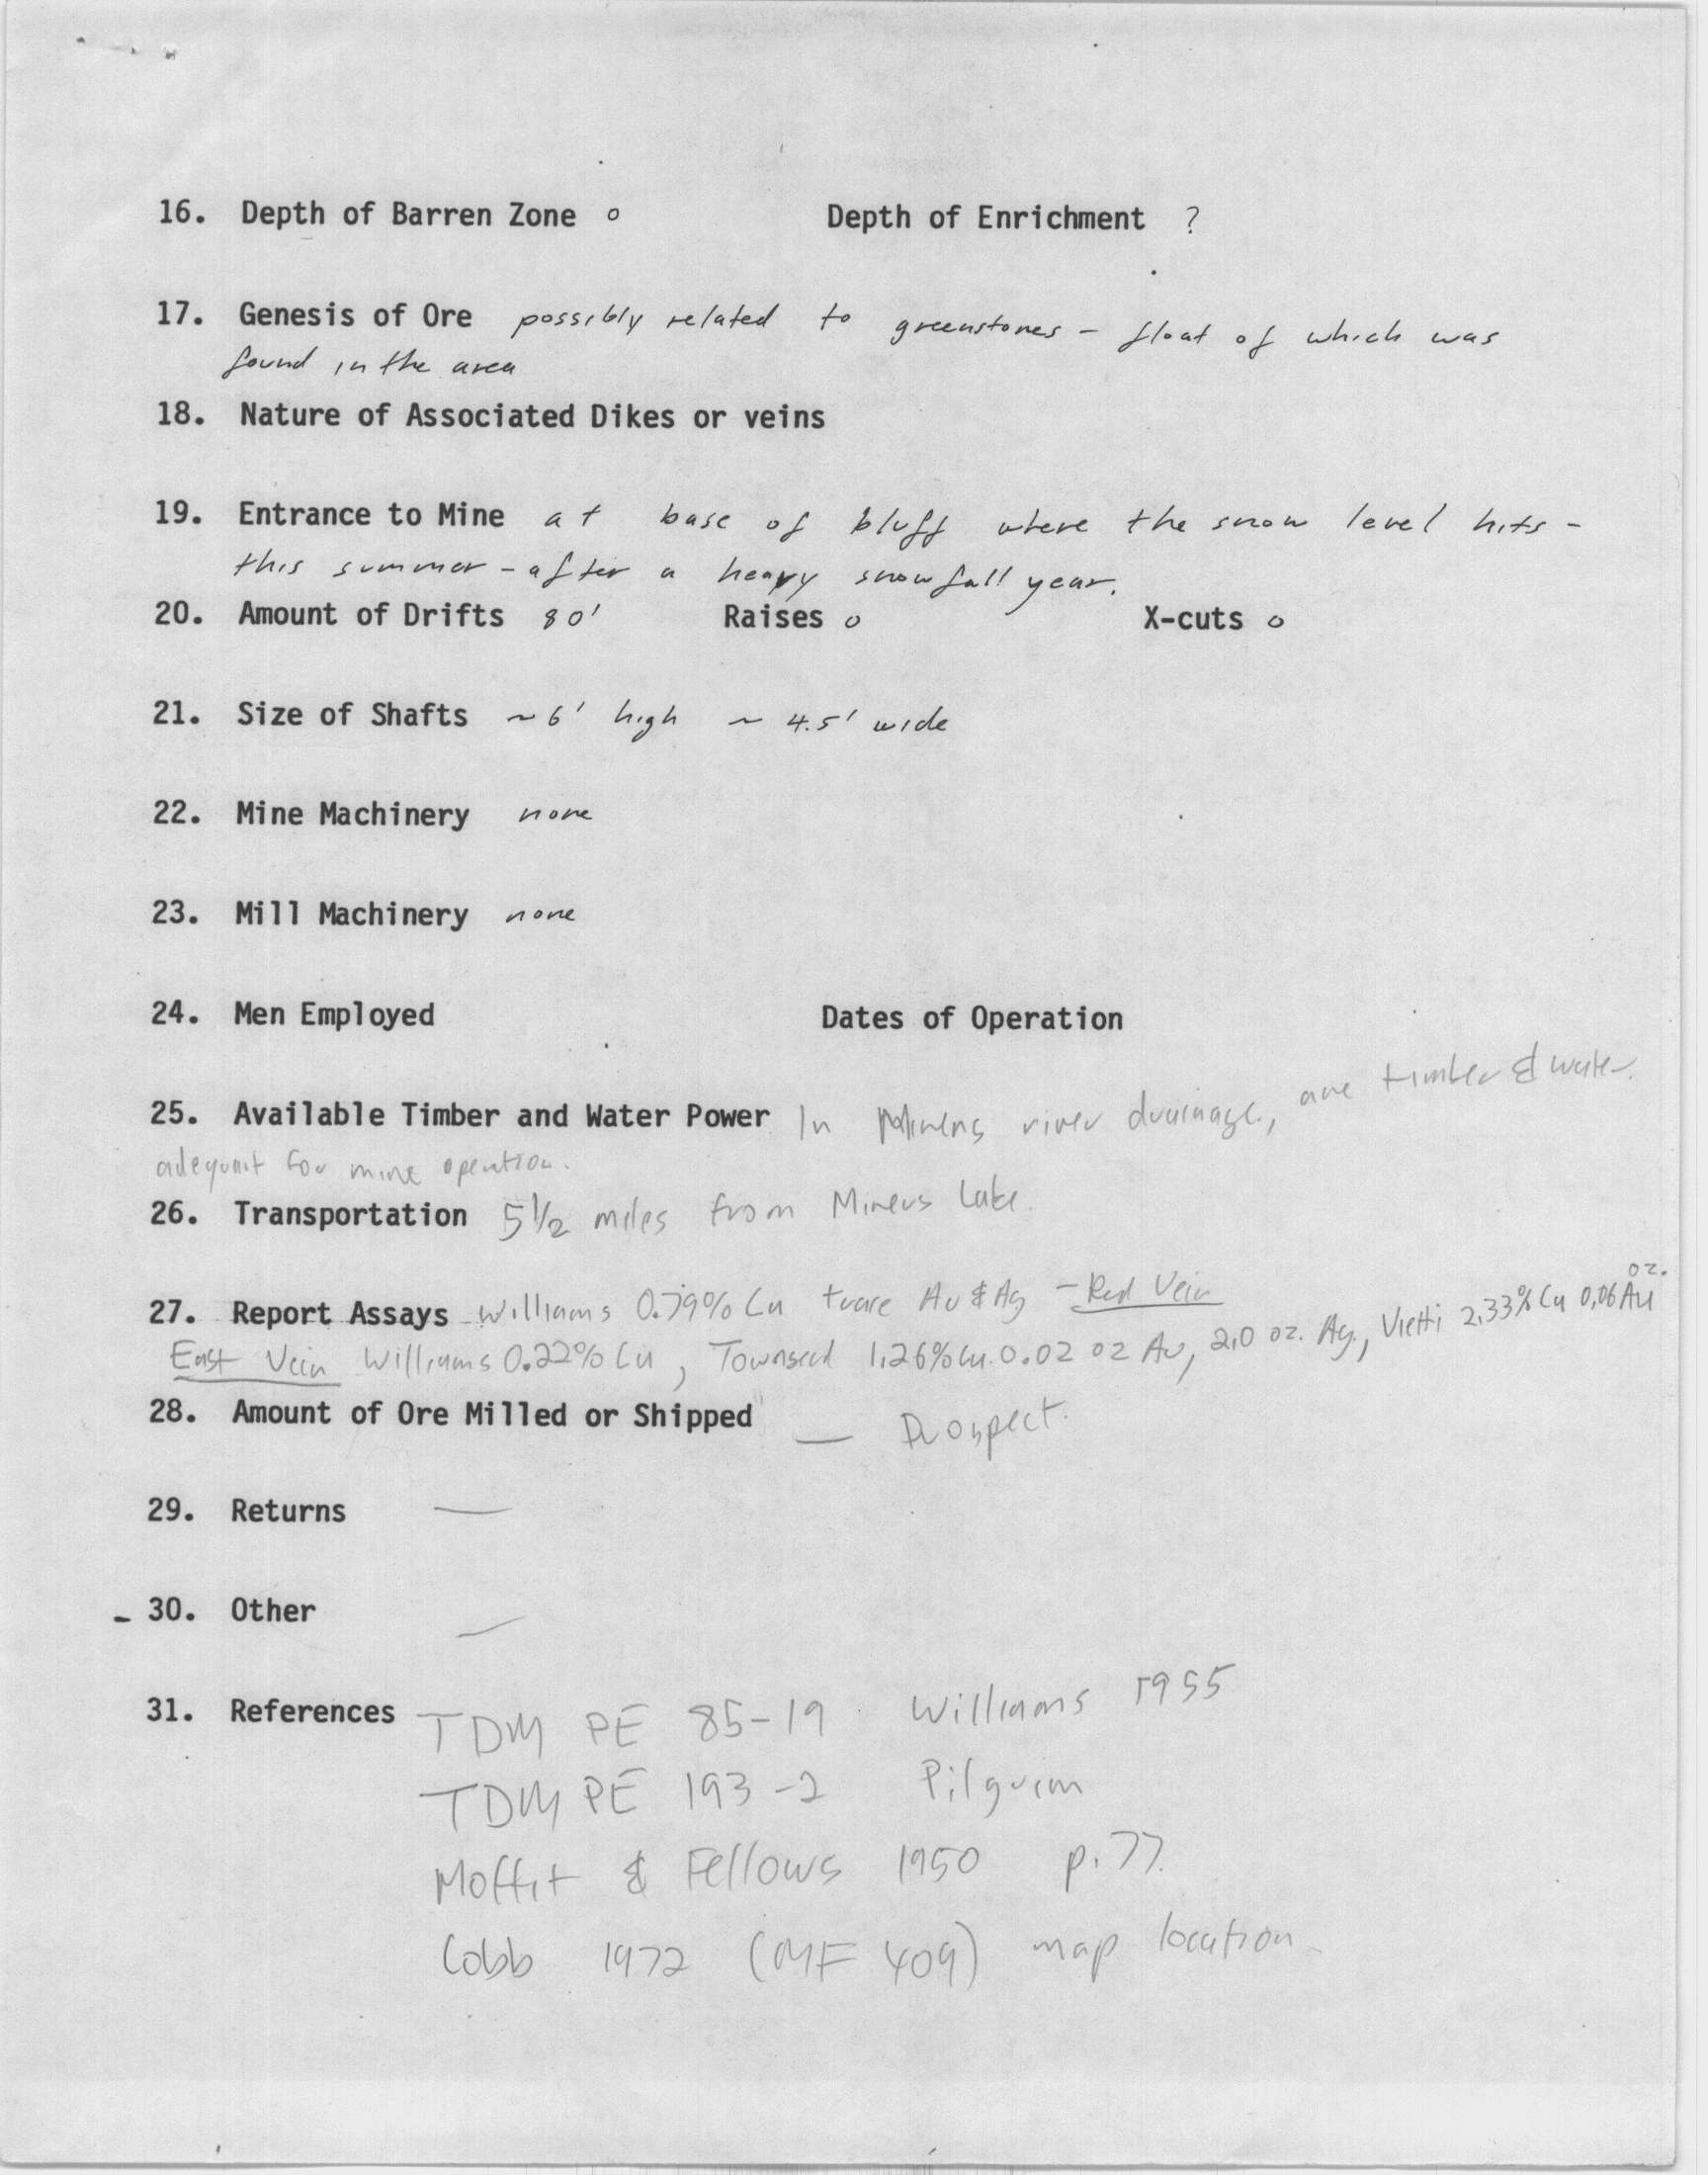 16. Depth of Barren Zone 0 Depth of Enrichment ?
17. Genesis of Ore possibly related to greenstones - float of which was
found in the area
18. Nature of Associated Dikes or veins
19. Entrance to Mine at base of bluff where the snow level hits -
this summer - after a heavy snowfall year.
20. Amount of Drifts 80' Raises 0 X-cuts 0
21. Size of Shafts ~ 6' high ~ 4.5' wide
22. Mine Machinery none
23. Mill Machinery none
24. Men Employed Dates of Operation
25. Available Timber and Water Power In Miners river drainage, are timber & water
adequat for mine operation.
26. Transportation 5 1/2 miles from Miners Lake.
27. Report Assays Williams 0.79% Cu trace Au & Ag - Red Vein
East Vein Williams 0.22% Cu, Townsend 1.26% Cu. 0.02 oz Au, 2.0 oz. Ag., Vietti 2.33% Cu 0.06 oz. Au
28. Amount of Ore Milled or Shipped — Prospect.
29. Returns —
30. Other —
31. References TDM PE 85-19 Williams 1955
TDM PE 193-2 Pilgrim
Moffit & Fellows 1950 p. 77.
Cobb 1972 (MF 409) map location